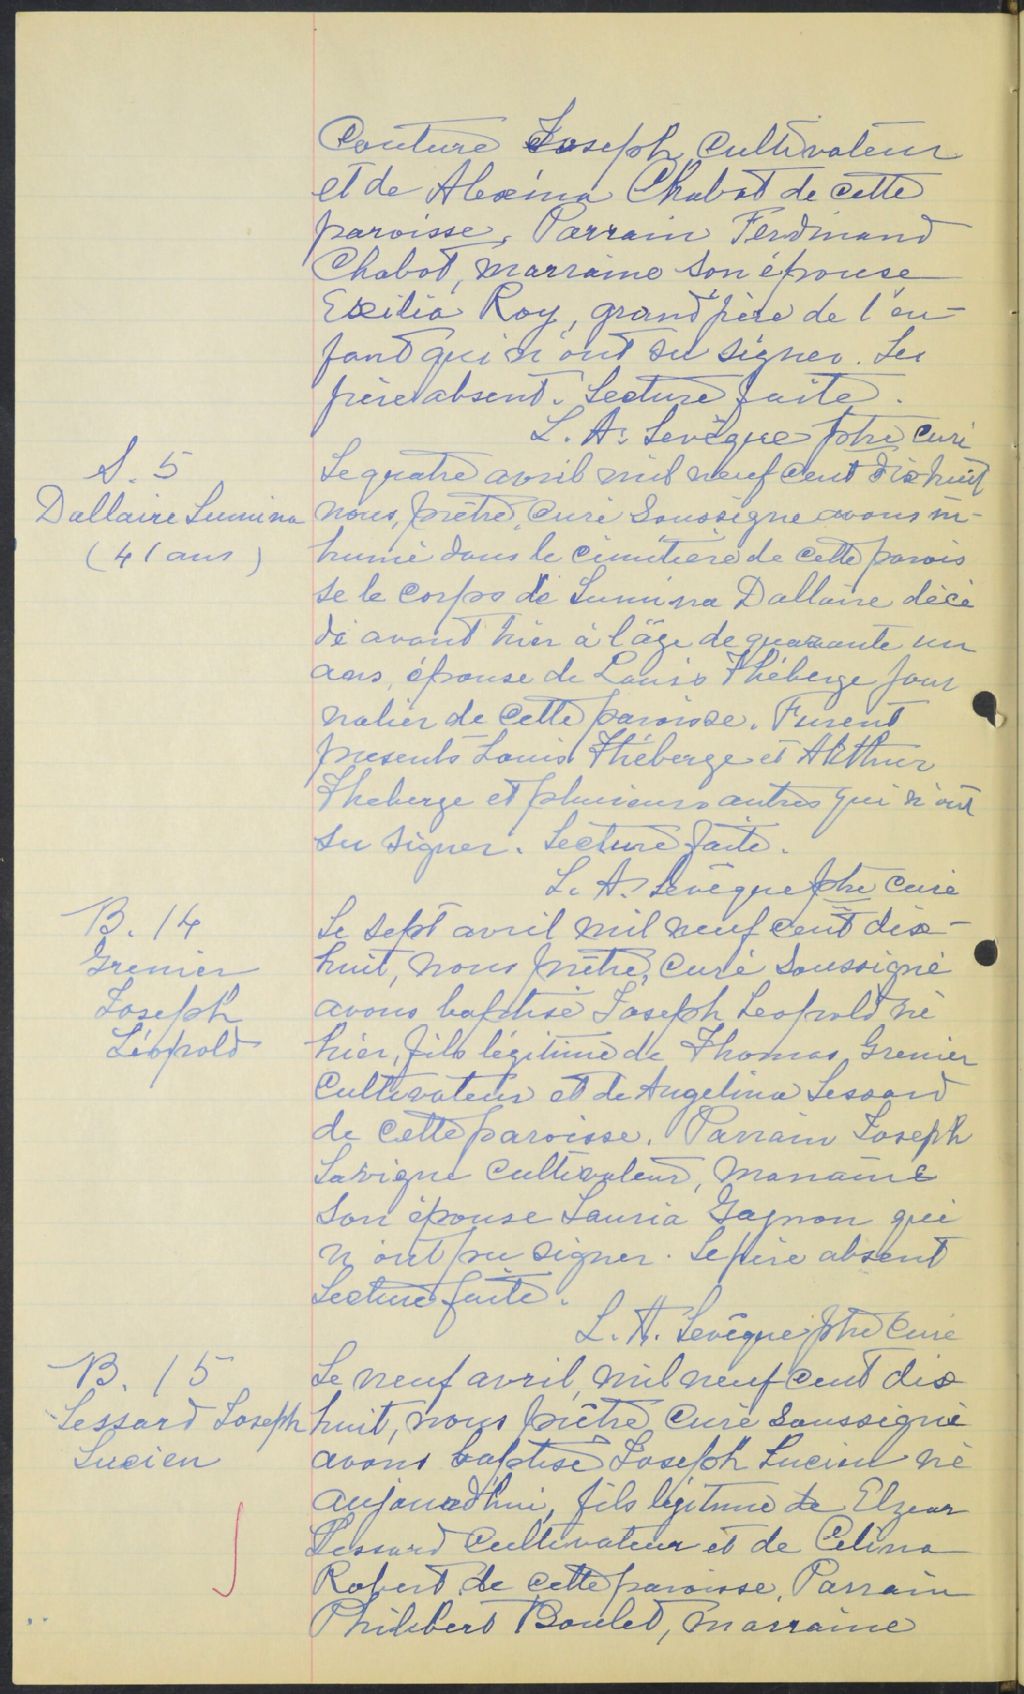 Couture Joseph, Cultivateur
et de Alexina Chabot de cette
paroisse, Parrain Ferdinand
Chabot, marraine son épouse
Exilia Roy, grand père de l'en-
fant qui n'ont su signer. Le
père absent. Lecture faite.
L. A. Levêque ptre curé
S. 5
Dallaire Lumina
(41 ans)
Le quatre avril mil neuf cent dix huit
nous, prêtre, curé soussigné avons in-
humé dans le cimetière de cette parois
se le corps de Lumina Dallaire décé
dé avant hier à l'âge de quarante un
ans, épouse de Louis Théberge jour
nalier de cette paroisse. Furent
presents Louis Théberge et Arthur
Theberge et plusieurs autres qui n'ont
su signer. Lecture faite.
L. A. Levêque ptre curé
B. 14
Grenier
Joseph
Léopold
Le sept avril mil neuf cent dix-
huit, nous prêtre, curé soussigné
avons baptisé Joseph Leopold né
hier, fils légitime de Thomas Grenier
Cultivateur et de Angelina Lessard
de cette paroisse. Parrain Joseph
Lavigne cultivateur, marraine
son épouse Lauria Gagnon qui
n'ont pu signer. Le père absent
Lecture faite.
L. A. Levêque ptre curé
B. 15
Lessard Joseph
Lucien
Le neuf avril, mil neuf cent dix
huit, nous prêtre, curé soussigné
avons baptisé Joseph Lucien né
aujourd'hui, fils légitime de Elzear
Lessard cultivateur et de Celina
Robert de cette paroisse. Parrain
Philibert Boulet, marraine